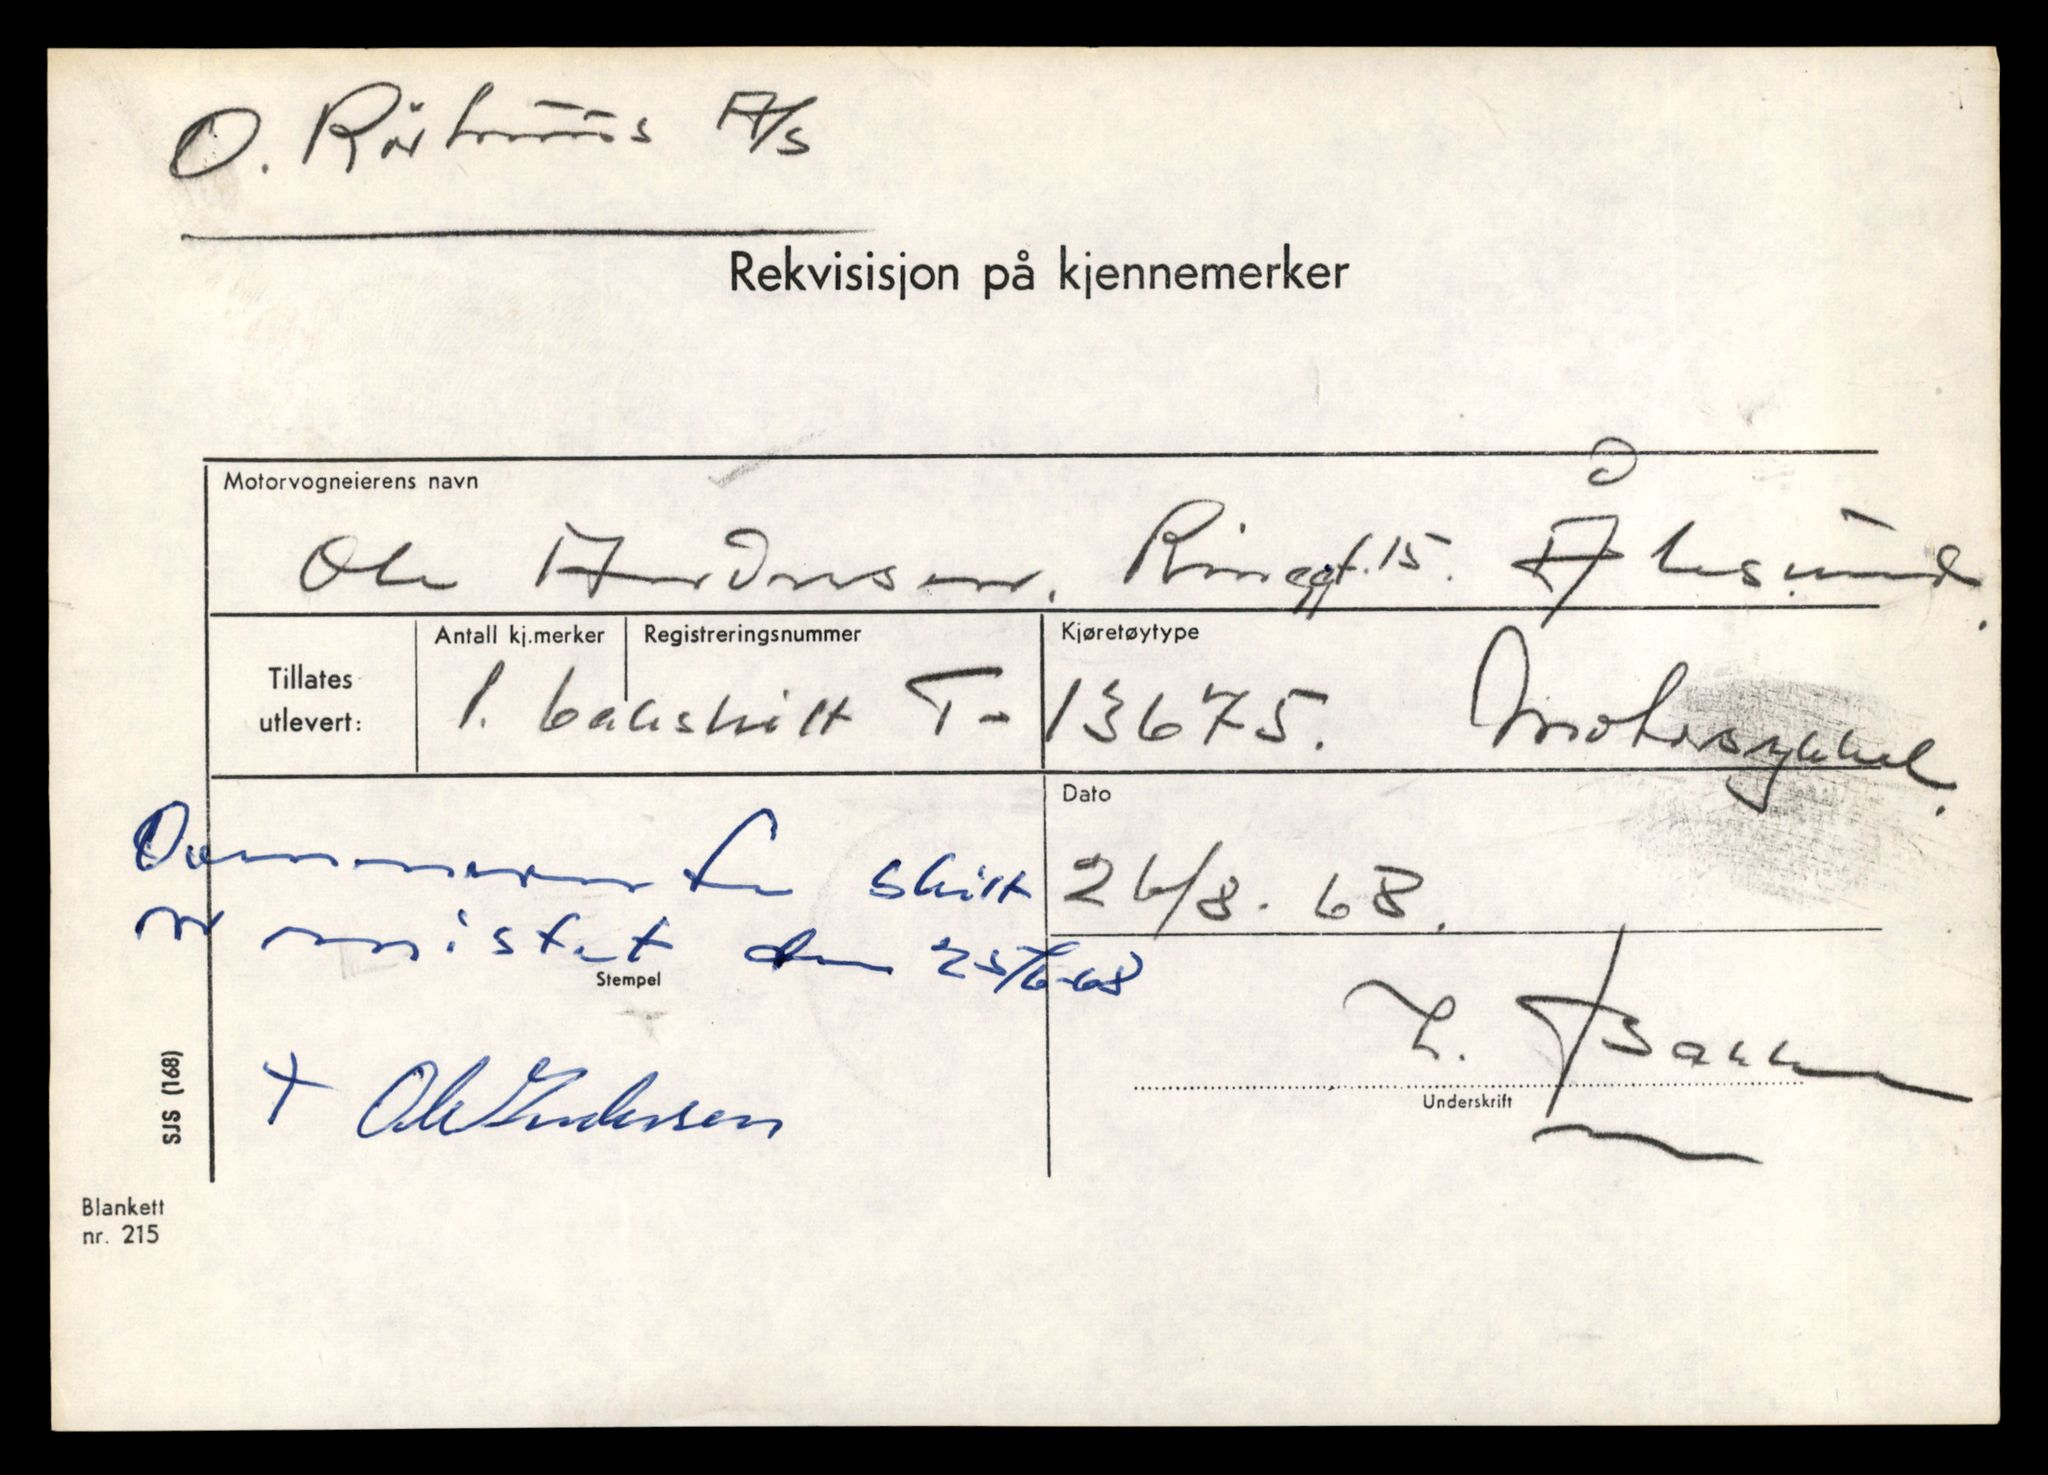 O. Rörhuus A/S
Rekvisisjon på kjennemerker
Motorvogneierens navn
Ole Andresen. Ringgt. 15. Ålesund.
Tillates utlevert:
Antall kj.merker
Registreringsnummer
Kjøretøytype
1. bakskilt T-13675. Motorsykkel.
Dato
26/8. 68.
Ovennevnte skilt
er mistet den 25/6-68
Stempel
+ Ole Andersen
L. Bakke
Underskrift
SJS (168)
Blankett
nr. 215